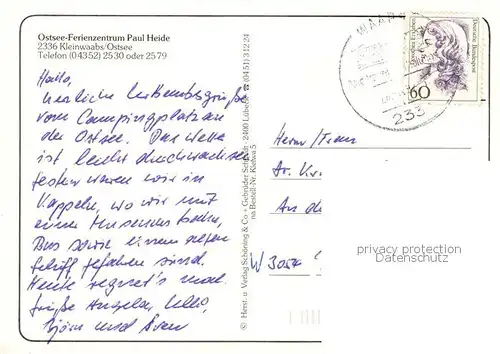 Ostsee-Ferienzentrum Paul Heide
2336 Kleinwaabs/Ostsee
Telefon (04352) 2530 oder 2579
Hallo,
herzliche Urlaubsgrüße
vom Campingplatz an
der Ostsee. Das Wetter
ist leicht durchwachsen
gestern waren wir in
Kappeln, wo wir mit
einer Museums bahn,
Bus sowie einem alten
Schiff gefahren sind.
Heute regnet's mal.
Grüße Angela, Ulli,
Björn und Sven
© Herst. u. Verlag Schöning & Co + Gebrüder Schmidt · 2400 Lübeck ☎ (0451) 31224
na Bestell-Nr. Klwaa 5
WAAB
233
60
Deutsche Bundespost
Herrn/Frau
Dr. K
An de
W 3054
privacy protection
Datenschutz